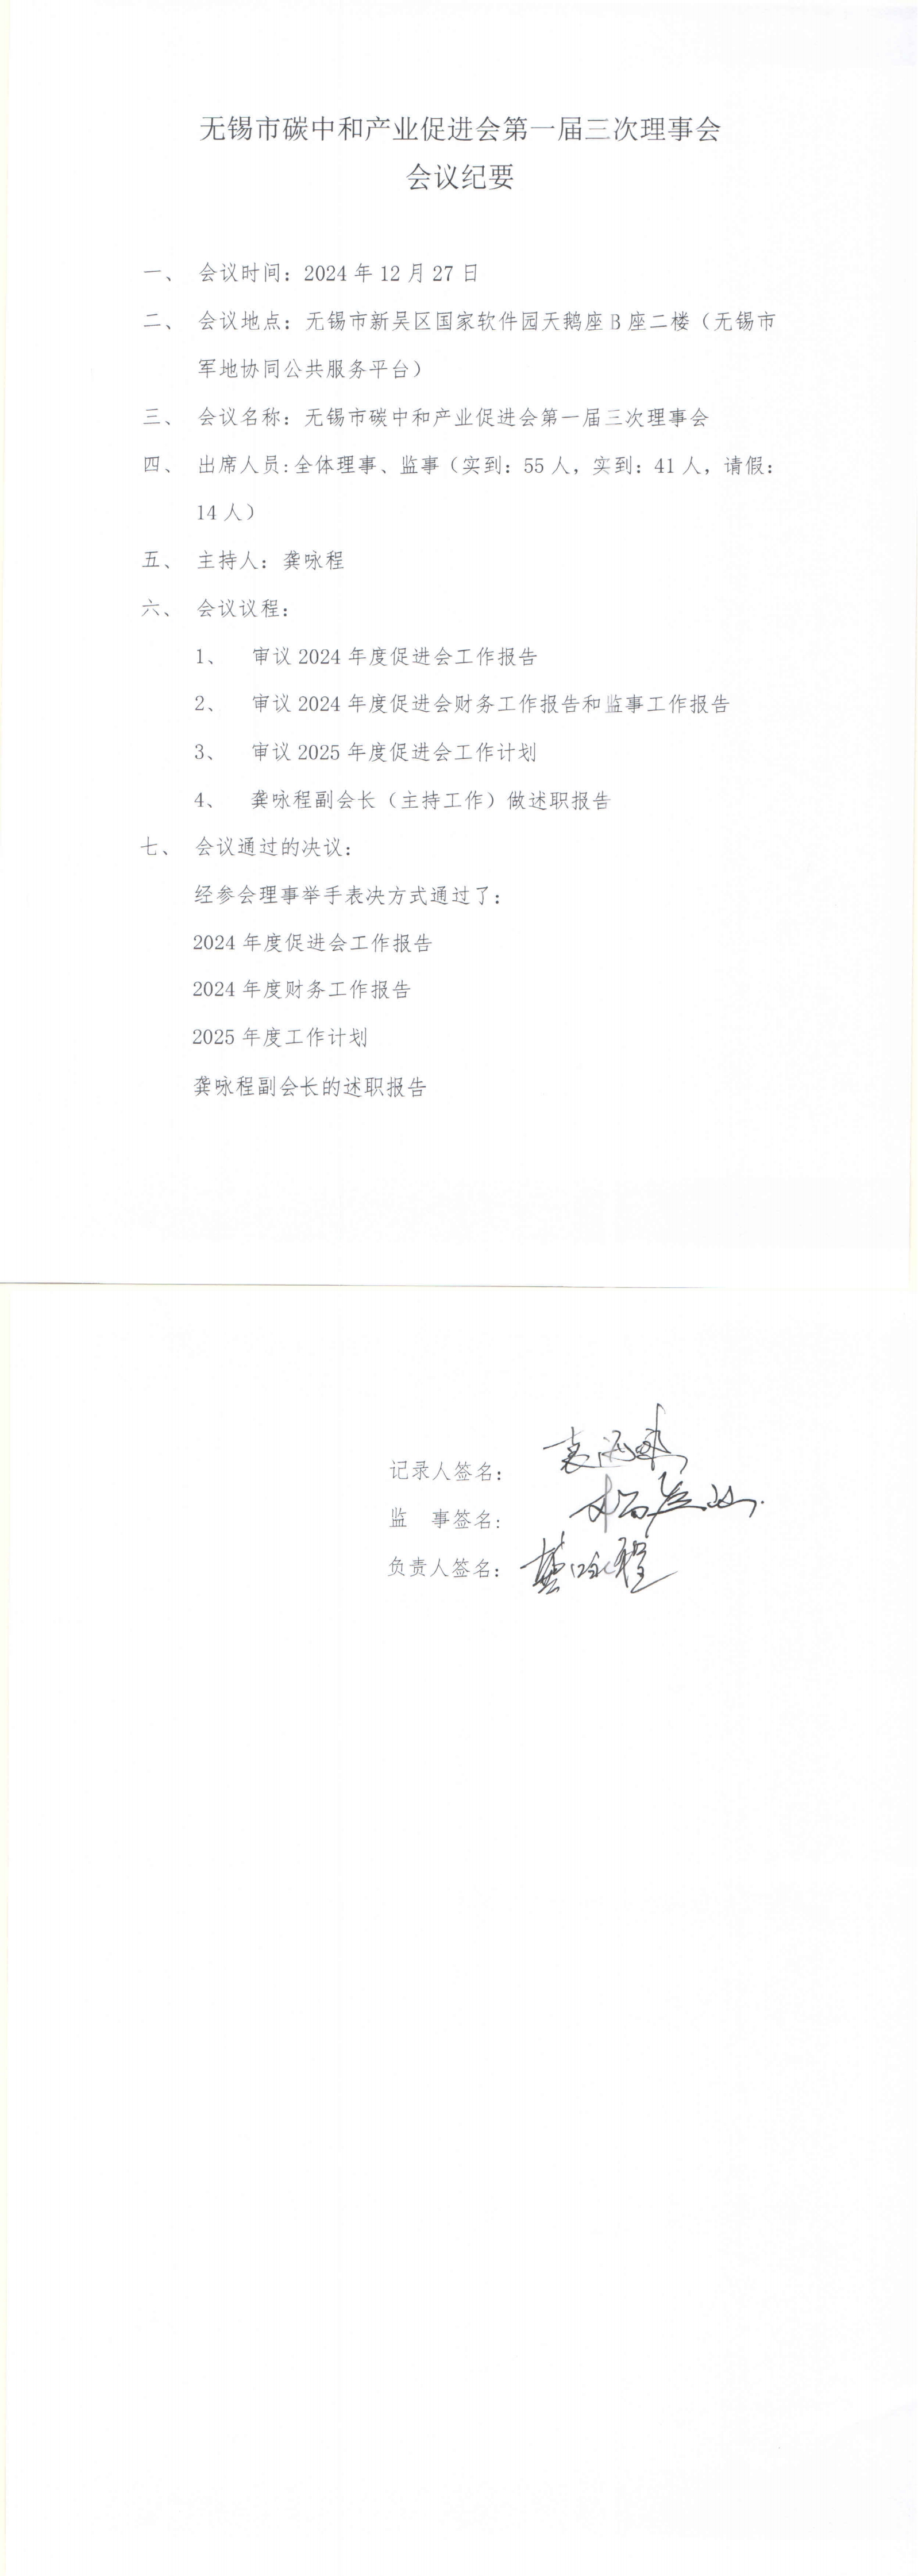 无锡市碳中和产业促进会第一届三次理事会
会议纪要
一、 会议时间：2024 年 12 月 27 日
二、 会议地点：无锡市新吴区国家软件园天鹅座 B 座二楼（无锡市
军地协同公共服务平台）
三、 会议名称：无锡市碳中和产业促进会第一届三次理事会
四、 出席人员:全体理事、监事（实到：55 人，实到：41 人，请假：
14 人）
五、 主持人：龚咏程
六、 会议议程：
1、 审议 2024 年度促进会工作报告
2、 审议 2024 年度促进会财务工作报告和监事工作报告
3、 审议 2025 年度促进会工作计划
4、 龚咏程副会长（主持工作）做述职报告
七、 会议通过的决议：
经参会理事举手表决方式通过了：
2024 年度促进会工作报告
2024 年度财务工作报告
2025 年度工作计划
龚咏程副会长的述职报告
记录人签名：
监 事签名：
负责人签名：龚咏程